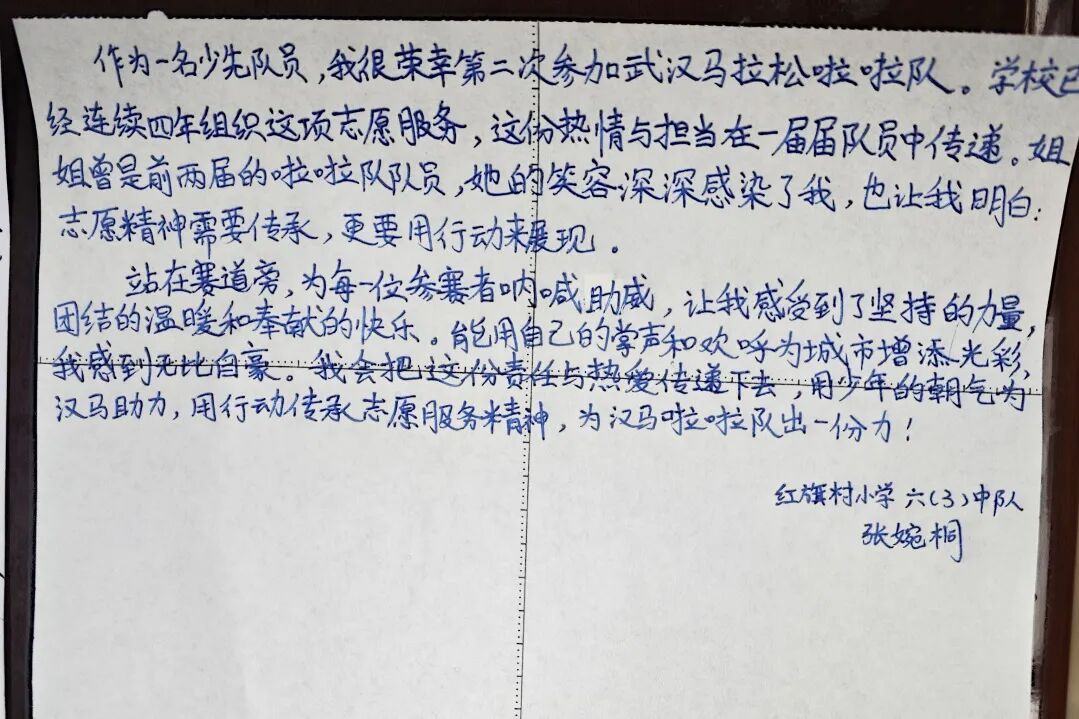 作为一名少先队员，我很荣幸第二次参加武汉马拉松啦啦队。学校已
经连续四年组织这项志愿服务，这份热情与担当在一届届队员中传递。姐
姐曾是前两届的啦啦队队员，她的笑容深深感染了我，也让我明白：
志愿精神需要传承，更要用行动来展现。
站在赛道旁，为每一位参赛者呐喊助威，让我感受到了坚持的力量，
团结的温暖和奉献的快乐。能用自己的掌声和欢呼为城市增添光彩，
我感到无比自豪。我会把这份责任与热爱传递下去，用少年的朝气为
汉马助力，用行动传承志愿服务精神，为汉马啦啦队出一份力！
红旗村小学六(3)中队
张婉桐